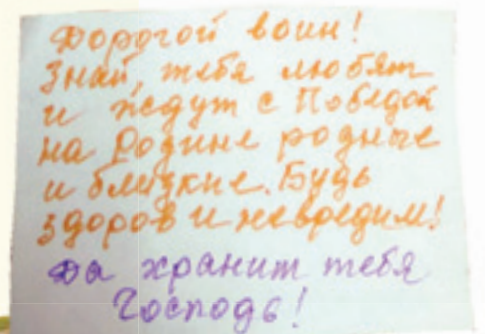 Дорогой воин!
Знай, тебя любят
и ждут с Победой
на Родине родные
и близкие. Будь
здоров и невредим!
Да хранит тебя
Господь!